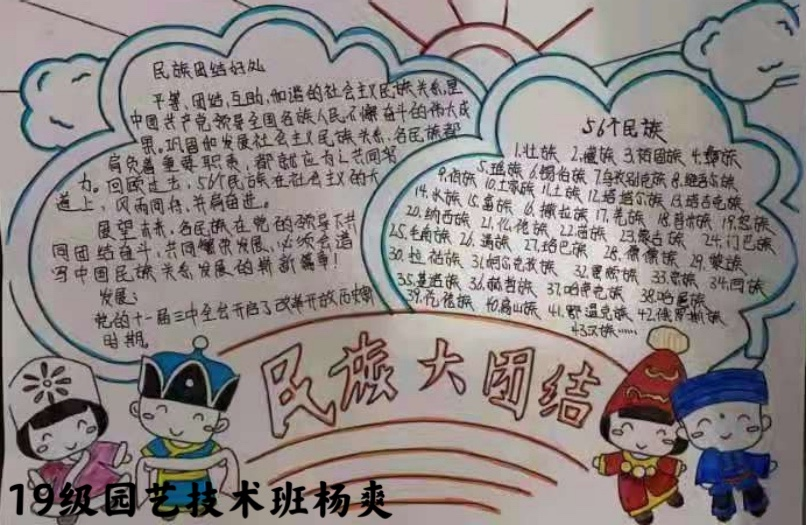 民族团结好处
平等、团结、互助、和谐的社会主义民族关系,是
中国共产党领导全国各族人民不懈奋斗的伟大成
果。巩固和发展社会主义民族关系,各民族都
肩负着重要职责,都应为之共同努
力。回顾过去,56个民族在社会主义的大
道上,风雨同舟、并肩奋进。
展望未来,各民族在党的领导下共
同团结奋斗,共同繁荣发展,必须会谱
写中国民族关系发展的崭新篇章!
发展:
党的十一届三中全会开启了改革开放历史新
时期。
56个民族
1.壮族 2.藏族 3.裕固族 4.彝族
5.瑶族 6.锡伯族 7.乌孜别克族 8.维吾尔族
9.佤族 10.土家族 11.土族 12.塔塔尔族 13.塔吉克族
14.水族 15.畲族 16.撒拉族 17.羌族 18.普米族 19.怒族
20.纳西族 21.仫佬族 22.苗族 23.蒙古族 24.门巴族
25.毛南族 26.满族 27.珞巴族 28.傈僳族 29.黎族
30.拉祜族 31.柯尔克孜族 32.景颇族 33.京族 34.回族
35.基诺族 36.赫哲族 37.哈萨克族 38.哈尼族
39.仡佬族 40.高山族 41.鄂温克族 42.俄罗斯族
43.汉族……
民族大团结
19级园艺技术班杨爽